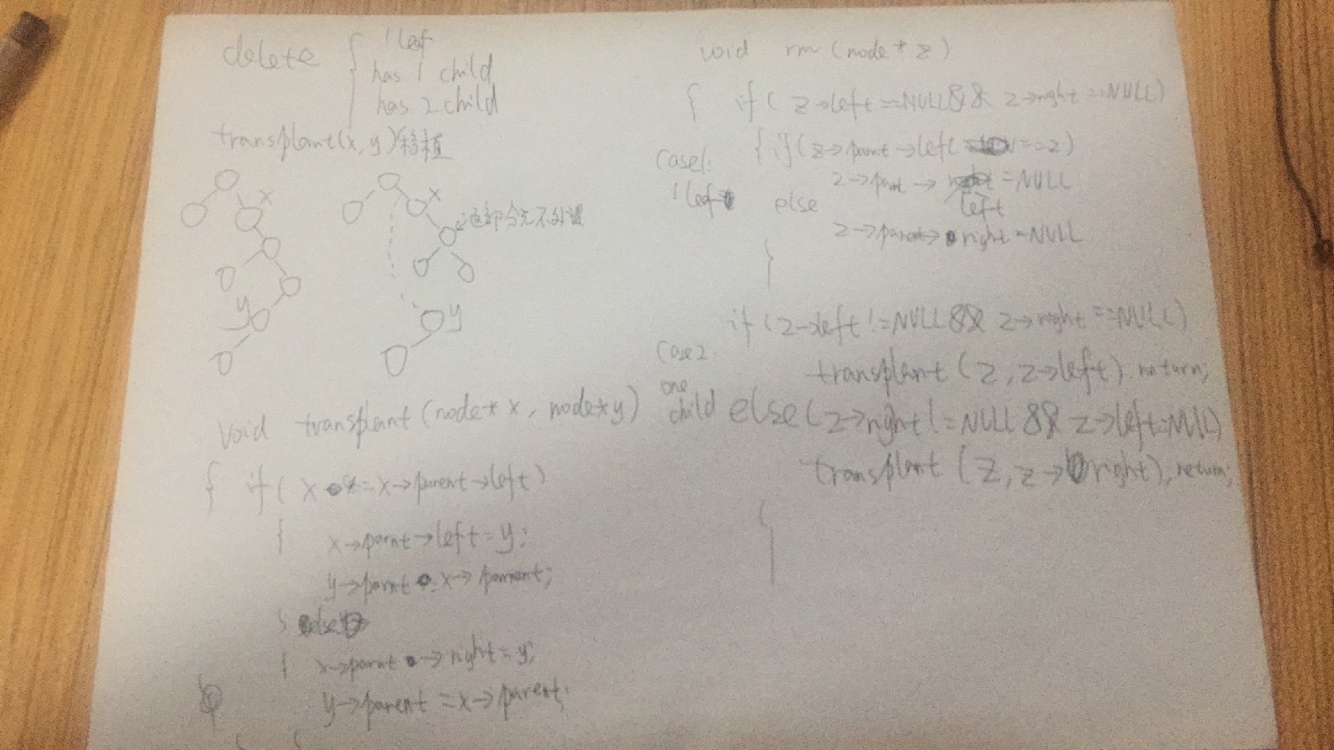 delete { 1 leaf
has 1 child
has 2 child
transplant(x, y) 移植
x
y
x
这部分先不处理
y
void transplant (node* x, node*y)
{ if ( x == x->parent->left)
{ x->parnt->left = y;
y->parnt = x->parnent;
}
{ x->parnt -> right = y;
y->parent = x->parent;
void rm (node* z)
{ if ( z->left ==NULL && z->right ==NULL)
case1:
1 leaf
{ if( z->parnt ->left == z)
z->parnt -> left =NULL
else
z->parent-> right =NULL
}
if ( z->left !=NULL && z->right ==NULL)
case2:
one
child
transplant ( z, z->left) return;
else ( z->right != NULL && z->left=NULL)
transplant ( z, z->right); return;
{